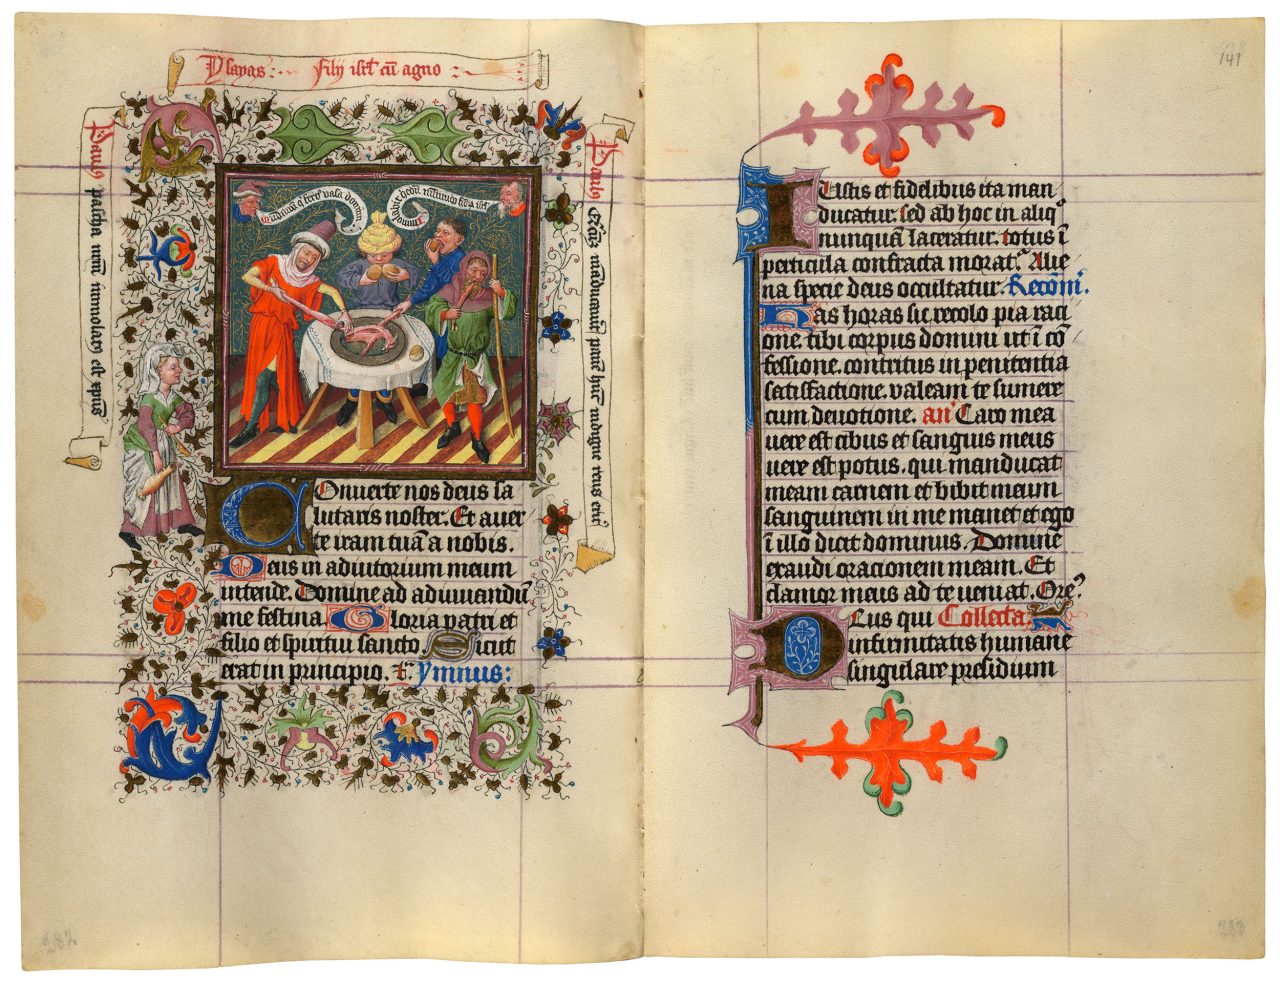 Ysayas : Filij isrl' cū agno :
Paulus pascha nrm immolatus est xpus
Conuerte nos deus sa
lutaris noster. Et auer
te iram tuā a nobis.
Deus in adiutorium meum
intende. Domine ad adiuuandū
me festina. Gloria patri et
filio et spiritui sancto. Sicut
erat in principio. Ymnus:
141
Iustis et fidelibus ita man
ducatur. sed ab hoc in aliqº
nunquā laceratur. totus ī
perticula confracta morat'. Alie
na specie deus occultatur. Recōm̄.
Has horas sic recolo pia raci
one. tibi corpus domini ut ī cō
fessione. contritus in penitentia
satisfactione. valeam te sumere
cum deuotione. an' Caro mea
uere est cibus et sanguis meus
uere est potus. qui manducat
meam carnem et bibit meum
sanguinem in me manet et ego
ī illo dicit dominus. Domine
exaudi orationem meam. Et
clamor meus ad te ueniat. Ore'.
Deus qui Collecta.
infirmitatis humane
singulare presidium
282
283